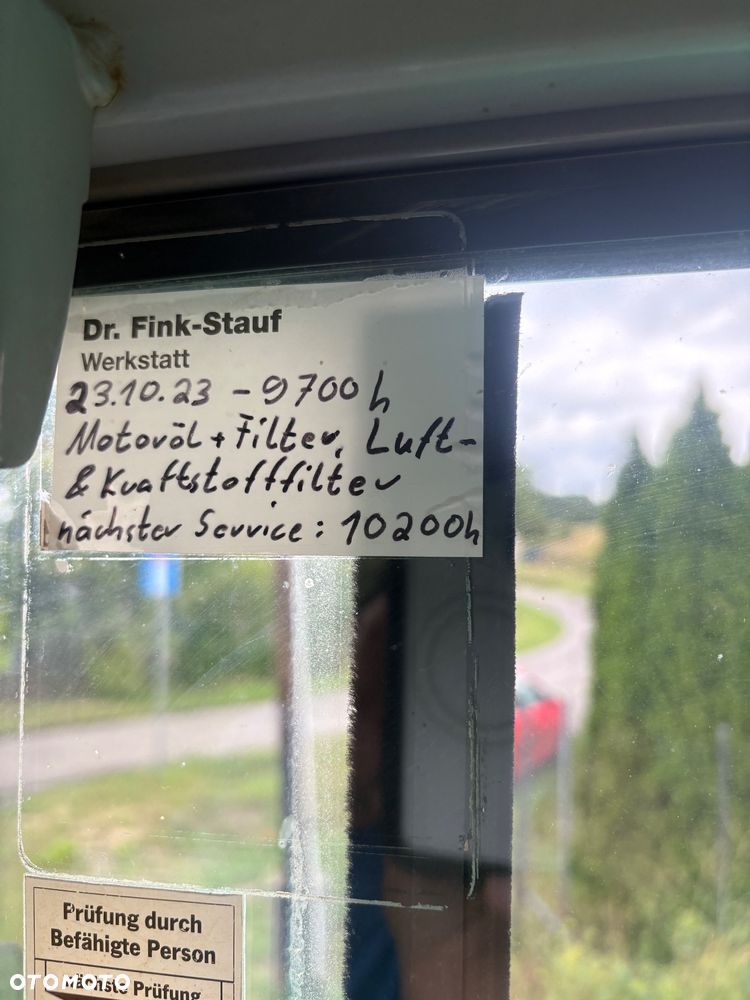 Dr. Fink-Stauf
Werkstatt
23.10.23 - 9700h
Motoröl + Filter, Luft-
& Kraftstofffilter
nächster Service: 10200h
Prüfung durch
Befähigte Person
nächste Prüfung
OTOMOTO